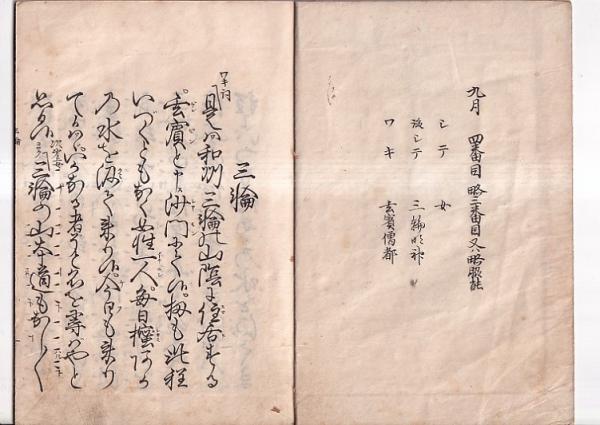 九月 四番目 略三番目又ハ略脇能
シテ 女
後シテ 三輪明神
ワキ 玄賓僧都
三輪
ワキ詞
是ハ和州三輪の山陰に住居する
玄賓と申沙門にて候扨も此程
いづくともなく女性一人毎日樒閼伽
の水を汲て来り候今日も来り
て候ハヾいかなる者ぞと名を尋ばやと
思ひ候
次第女
三輪の山本道もなし〱